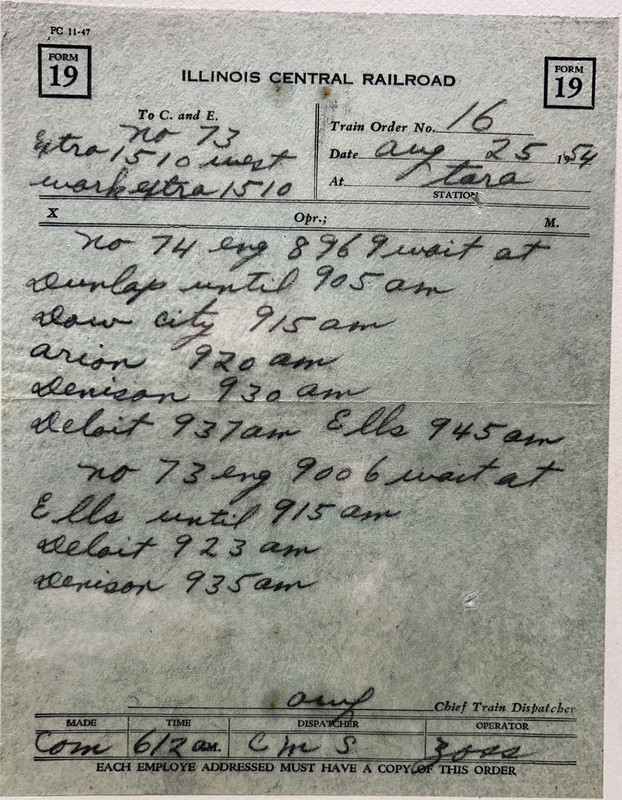 PC 11-47
FORM 19
ILLINOIS CENTRAL RAILROAD
FORM 19
To C. and E.
no 73
Extra 1510 west
work extra 1510
Train Order No. 16
Date aug 25 1954
At tara
STATION
X Opr.; M.
no 74 eng 8969 wait at
Dunlap until 905 am
Dow city 915 am
arion 920 am
Denison 930 am
Deloit 937 am Ells 945 am
no 73 eng 9006 wait at
Ells until 915 am
Deloit 923 am
Denison 935 am
Chief Train Dispatcher
MADE TIME DISPATCHER OPERATOR
Com 612 a M. C M S
EACH EMPLOYE ADDRESSED MUST HAVE A COPY OF THIS ORDER